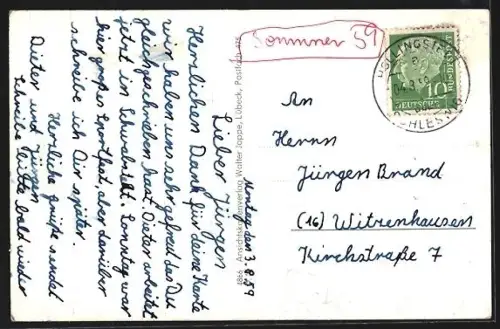 Montag den 3.8.59
Lieber Jürgen
Herzlichen Dank für deine Karte
wir haben uns sehr gefreut das Du
gleich geschrieben hast. Dieter arbeitet
jetzt in Schwabstedt. Sonntag war
hier großes Sportfest, aber darüber
schreibe ich Dir später.
Herzliche Grüße sendet
Dieter und Jürgen
Schreibe bitte bald wieder
Ansichtskartenverlag Walter Jappe, Lübeck, Postfach 475
Sommer 59
HOLLINGSTEDT
10
DEUTSCHE
BUNDESPOST
An
Herrn
Jürgen Brand
(16) Witzenhausen
Kirchstraße 7